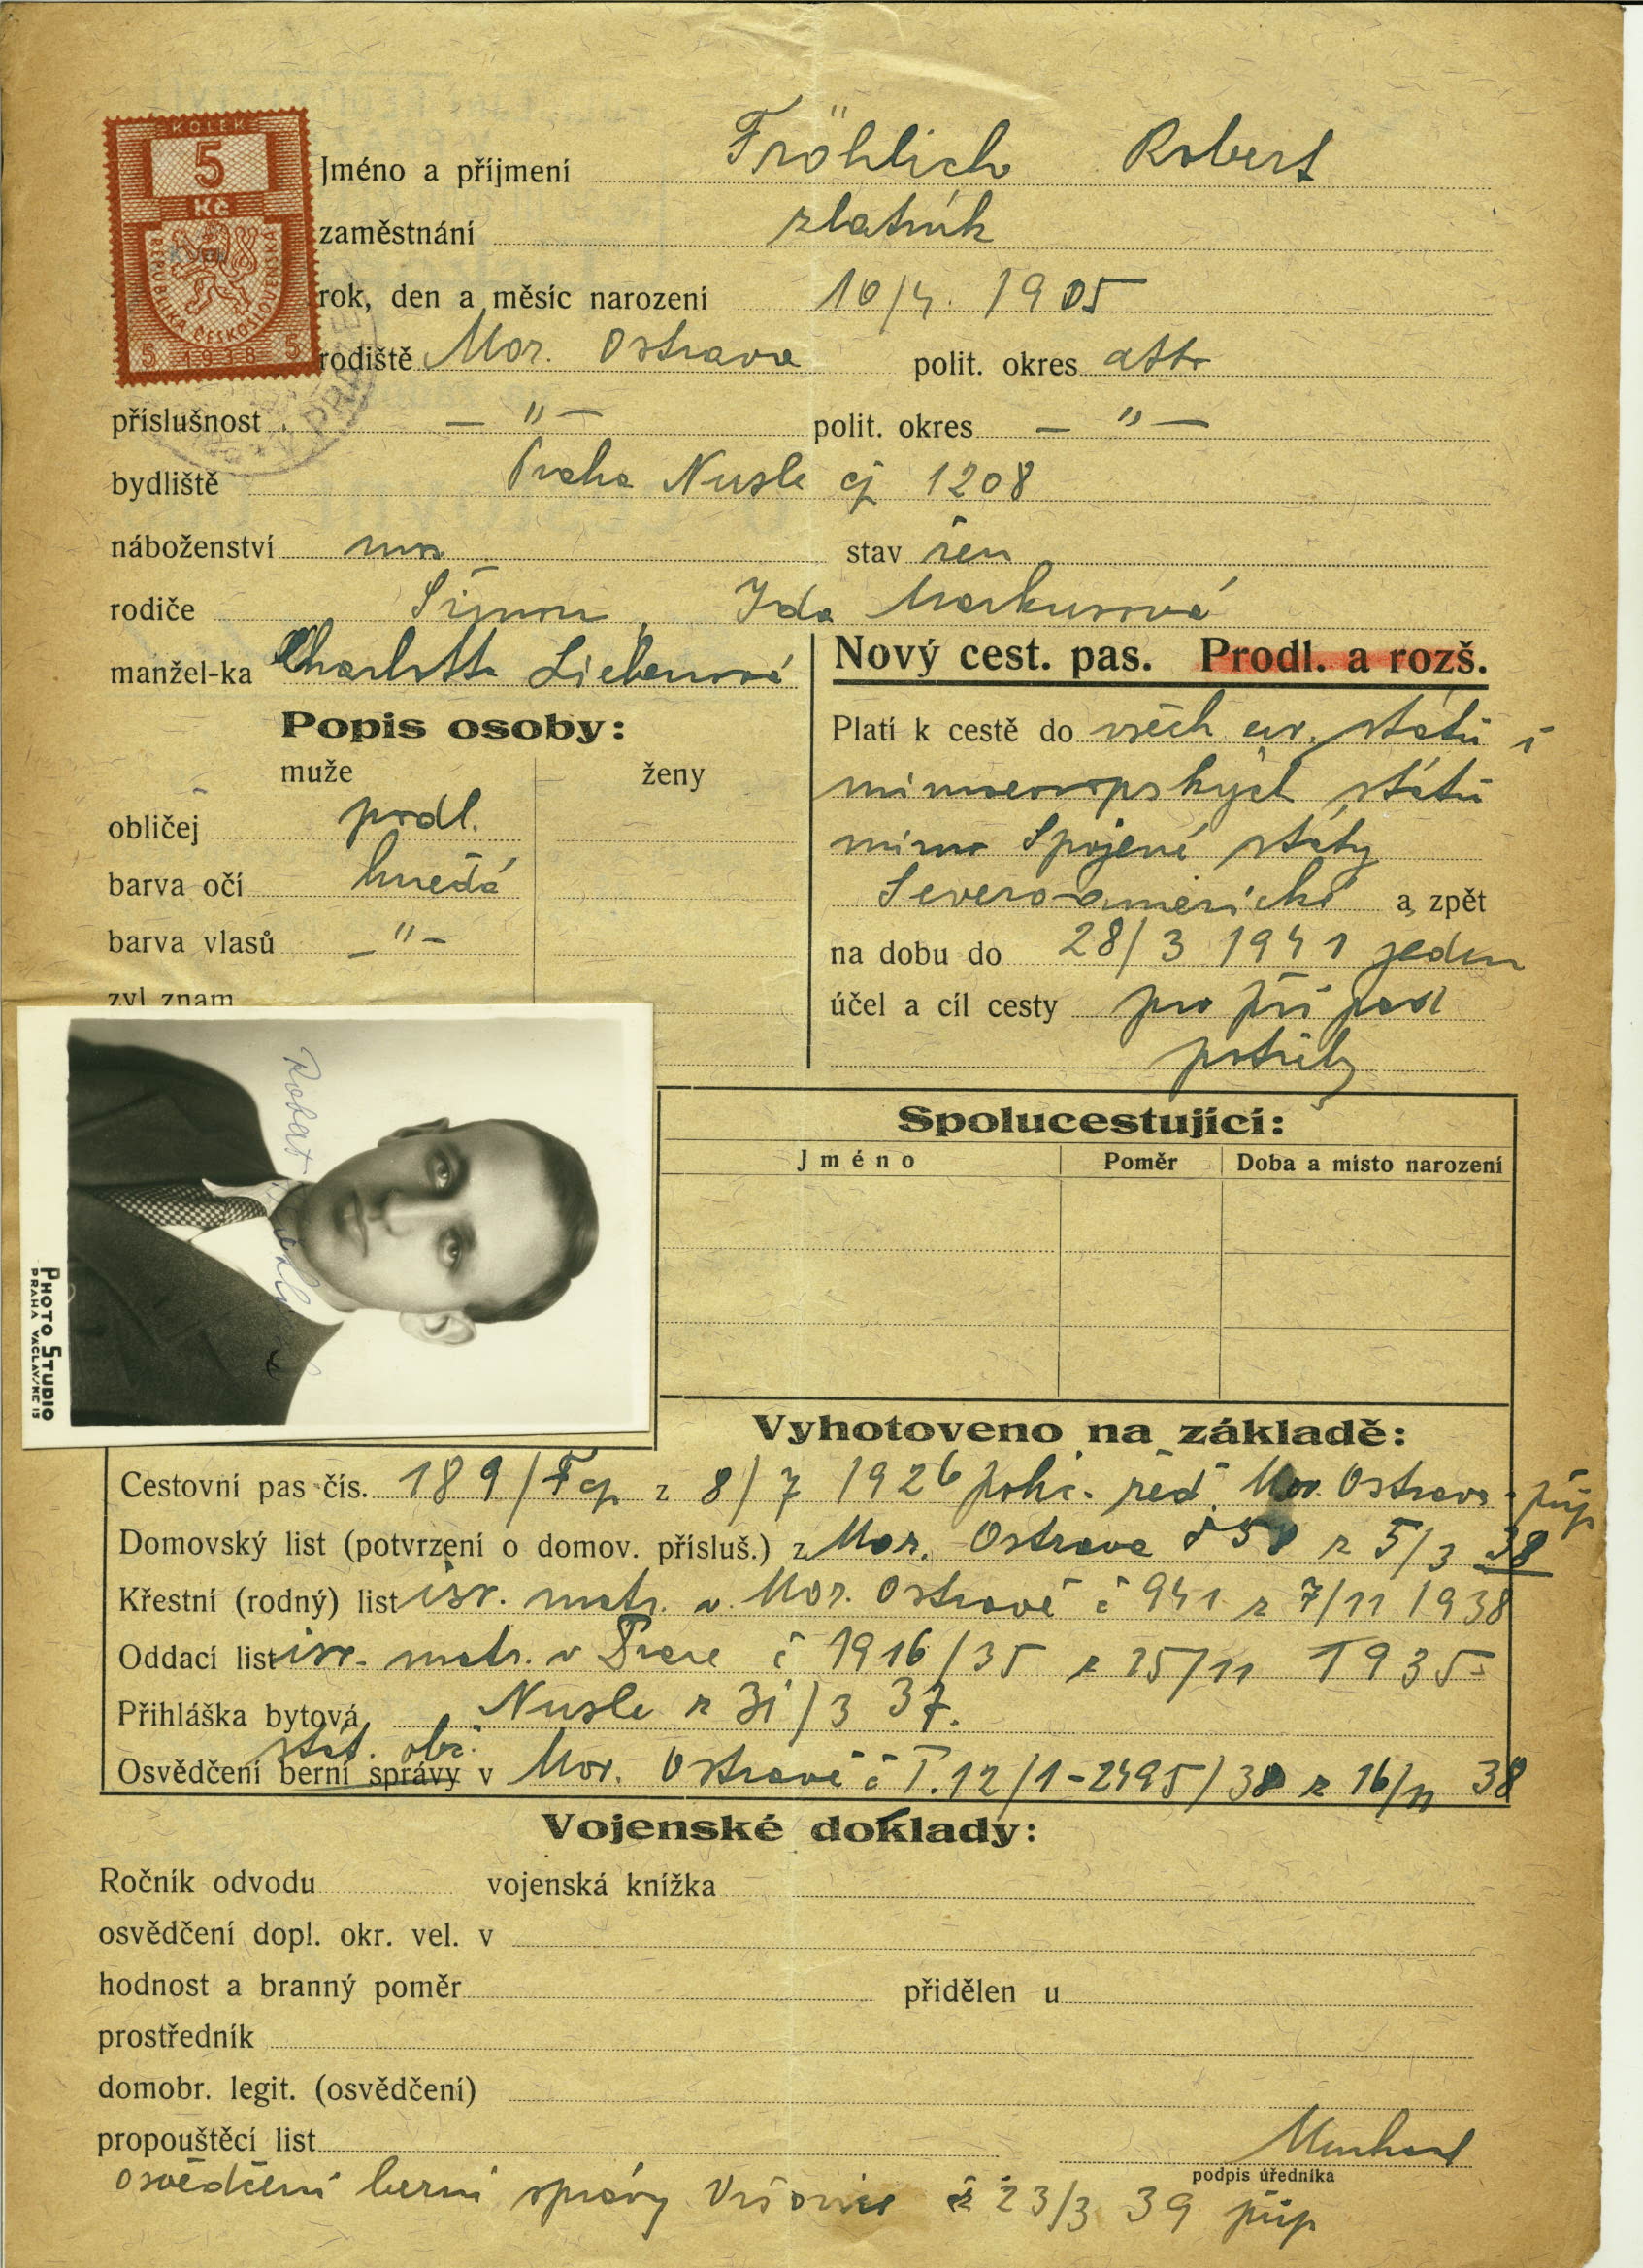 KOLEK
5
Kč
REPUBLIKA ČESKOSLOVENSKÁ
5 1938 5
Jméno a příjmení Fröhlich Robert
zaměstnání zlatník
rok, den a měsíc narození 10/4. 1905
rodiště Mor. Ostrava polit. okres dtto
příslušnost — " — polit. okres — " —
bydliště Praha Nusle čp 1208
náboženství stav žen
rodiče Šimon, Ida Markusová
manžel-ka Charlotta Liebenová
Nový cest. pas. Prodl. a rozš.
Popis osoby:
muže ženy
obličej podl.
barva očí hnědá
barva vlasů — " —
zvl znam
Platí k cestě do všech evr. států i
mimoevropských států
mimo Spojené státy
Severo-americké a zpět
na dobu do 28/3 1941 jeden
účel a cíl cesty pro pří pad
potřeby
Robert Fröhlich
PHOTO STUDIO
PRAHA VÁCLAV. NÁ. 15
Spolucestující:
Jméno Poměr Doba a místo narození
Vyhotoveno na základě:
Cestovní pas čís. 189/ z 8/7 1926 polic. řed. Mor. Ostrava - přip
Domovský list (potvrzení o domov. přísluš.) z Mor. Ostrava z 5/3 38
Křestní (rodný) list isr. matr. v Mor. Ostravě č 941 z 7/11 1938
Oddací list isr. matr. v Praze č 1916/35 z 25/11 1935
Přihláška bytová Nusle z 31/3 37.
stát. obč.
Osvědčení berní správy v Mor. Ostravě č I.12/1-2495/38 z 16/11 38
Vojenské doklady:
Ročník odvodu vojenská knížka
osvědčení dopl. okr. vel. v
hodnost a branný poměr přidělen u
prostředník
domobr. legit. (osvědčení)
propouštěcí list
podpis úředníka
osvědčení berní správy Vršovice z 23/3 39 přip